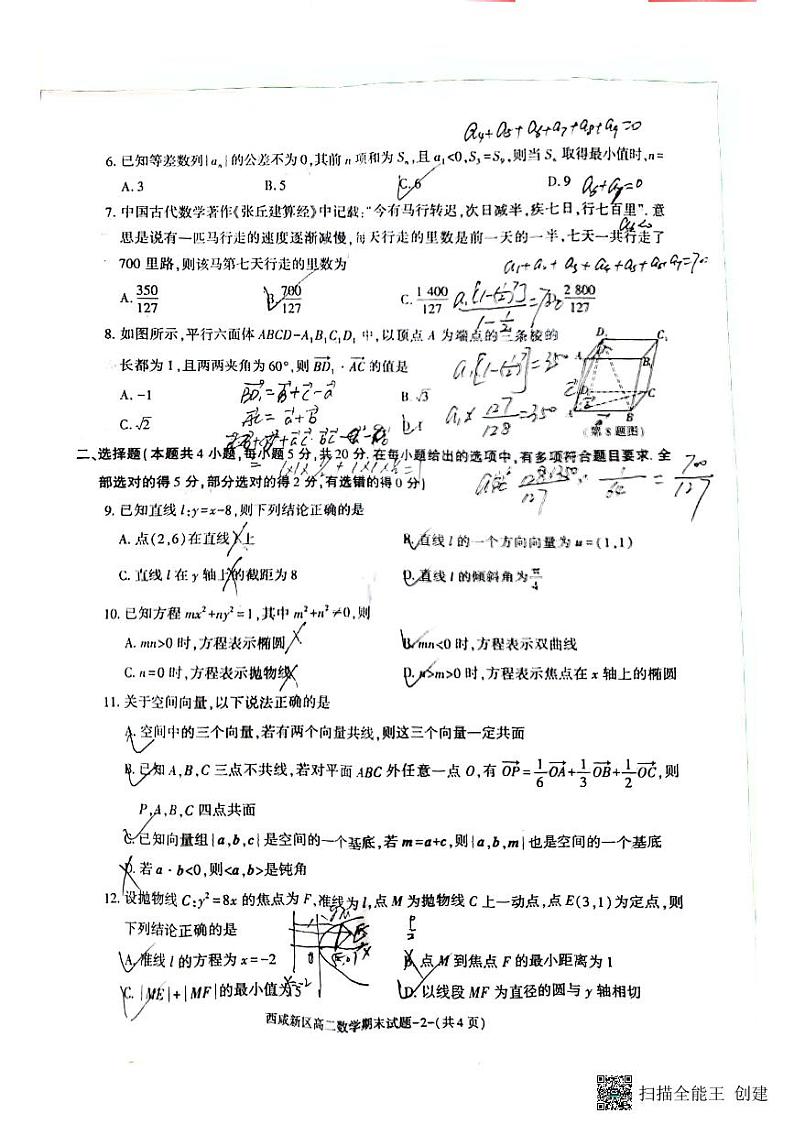 a₄+a₅+a₆+a₇+a₈+a₉=0
6. 已知等差数列{aₙ}的公差不为0,其前n项和为Sₙ,且a₁<0,S₃=S₉,则当Sₙ取得最小值时,n=
A. 3 B. 5 C. 6 D. 9
7. 中国古代数学著作《张丘建算经》中记载:“今有马行转迟,次日减半,疾七日,行七百里”. 意
思是说有一匹马行走的速度逐渐减慢,每天行走的里数是前一天的一半,七天一共行走了
700里路,则该马第七天行走的里数为
a₁+a₂+a₃+a₄+a₅+a₆+a₇=70
A. 350/127 B. 700/127 C. 1 400/127 D. 2 800/127
8. 如图所示,平行六面体ABCD-A₁B₁C₁D₁中,以顶点A为端点的三条棱的
长都为1,且两两夹角为60°,则BD₁·AC的值是
A. -1 B. √3
C. √2 D. 1
BD₁=b+c-a
AC=a+b
a₁[1-(½)⁷]=350
a₁×127/128=350
(第8题图)
二、选择题(本题共4小题,每小题5分,共20分. 在每小题给出的选项中,有多项符合题目要求. 全
部选对的得5分,部分选对的得2分,有选错的得0分)
1/64 = 700/127
9. 已知直线l:y=x-8,则下列结论正确的是
A. 点(2,6)在直线l上 B. 直线l的一个方向向量为u=(1,1)
C. 直线l在y轴上的截距为8 D. 直线l的倾斜角为π/4
10. 已知方程mx²+ny²=1,其中m²+n²≠0,则
A. mn>0时,方程表示椭圆 B. mn<0时,方程表示双曲线
C. n=0时,方程表示抛物线 D. n>m>0时,方程表示焦点在x轴上的椭圆
11. 关于空间向量,以下说法正确的是
A. 空间中的三个向量,若有两个向量共线,则这三个向量一定共面
B. 已知A,B,C三点不共线,若对平面ABC外任意一点O,有OP=1/6OA+1/3OB+1/2OC,则
P,A,B,C四点共面
C. 已知向量组{a,b,c}是空间的一个基底,若m=a+c,则{a,b,m}也是空间的一个基底
D. 若a·b<0,则<a,b>是钝角
12. 设抛物线C:y²=8x的焦点为F,准线为l,点M为抛物线C上一动点,点E(3,1)为定点,则
下列结论正确的是
A. 准线l的方程为x=-2 B. 点M到焦点F的最小距离为1
C. |ME|+|MF|的最小值为5 D. 以线段MF为直径的圆与y轴相切
西咸新区高二数学期末试题-2-(共4页)
扫描全能王 创建